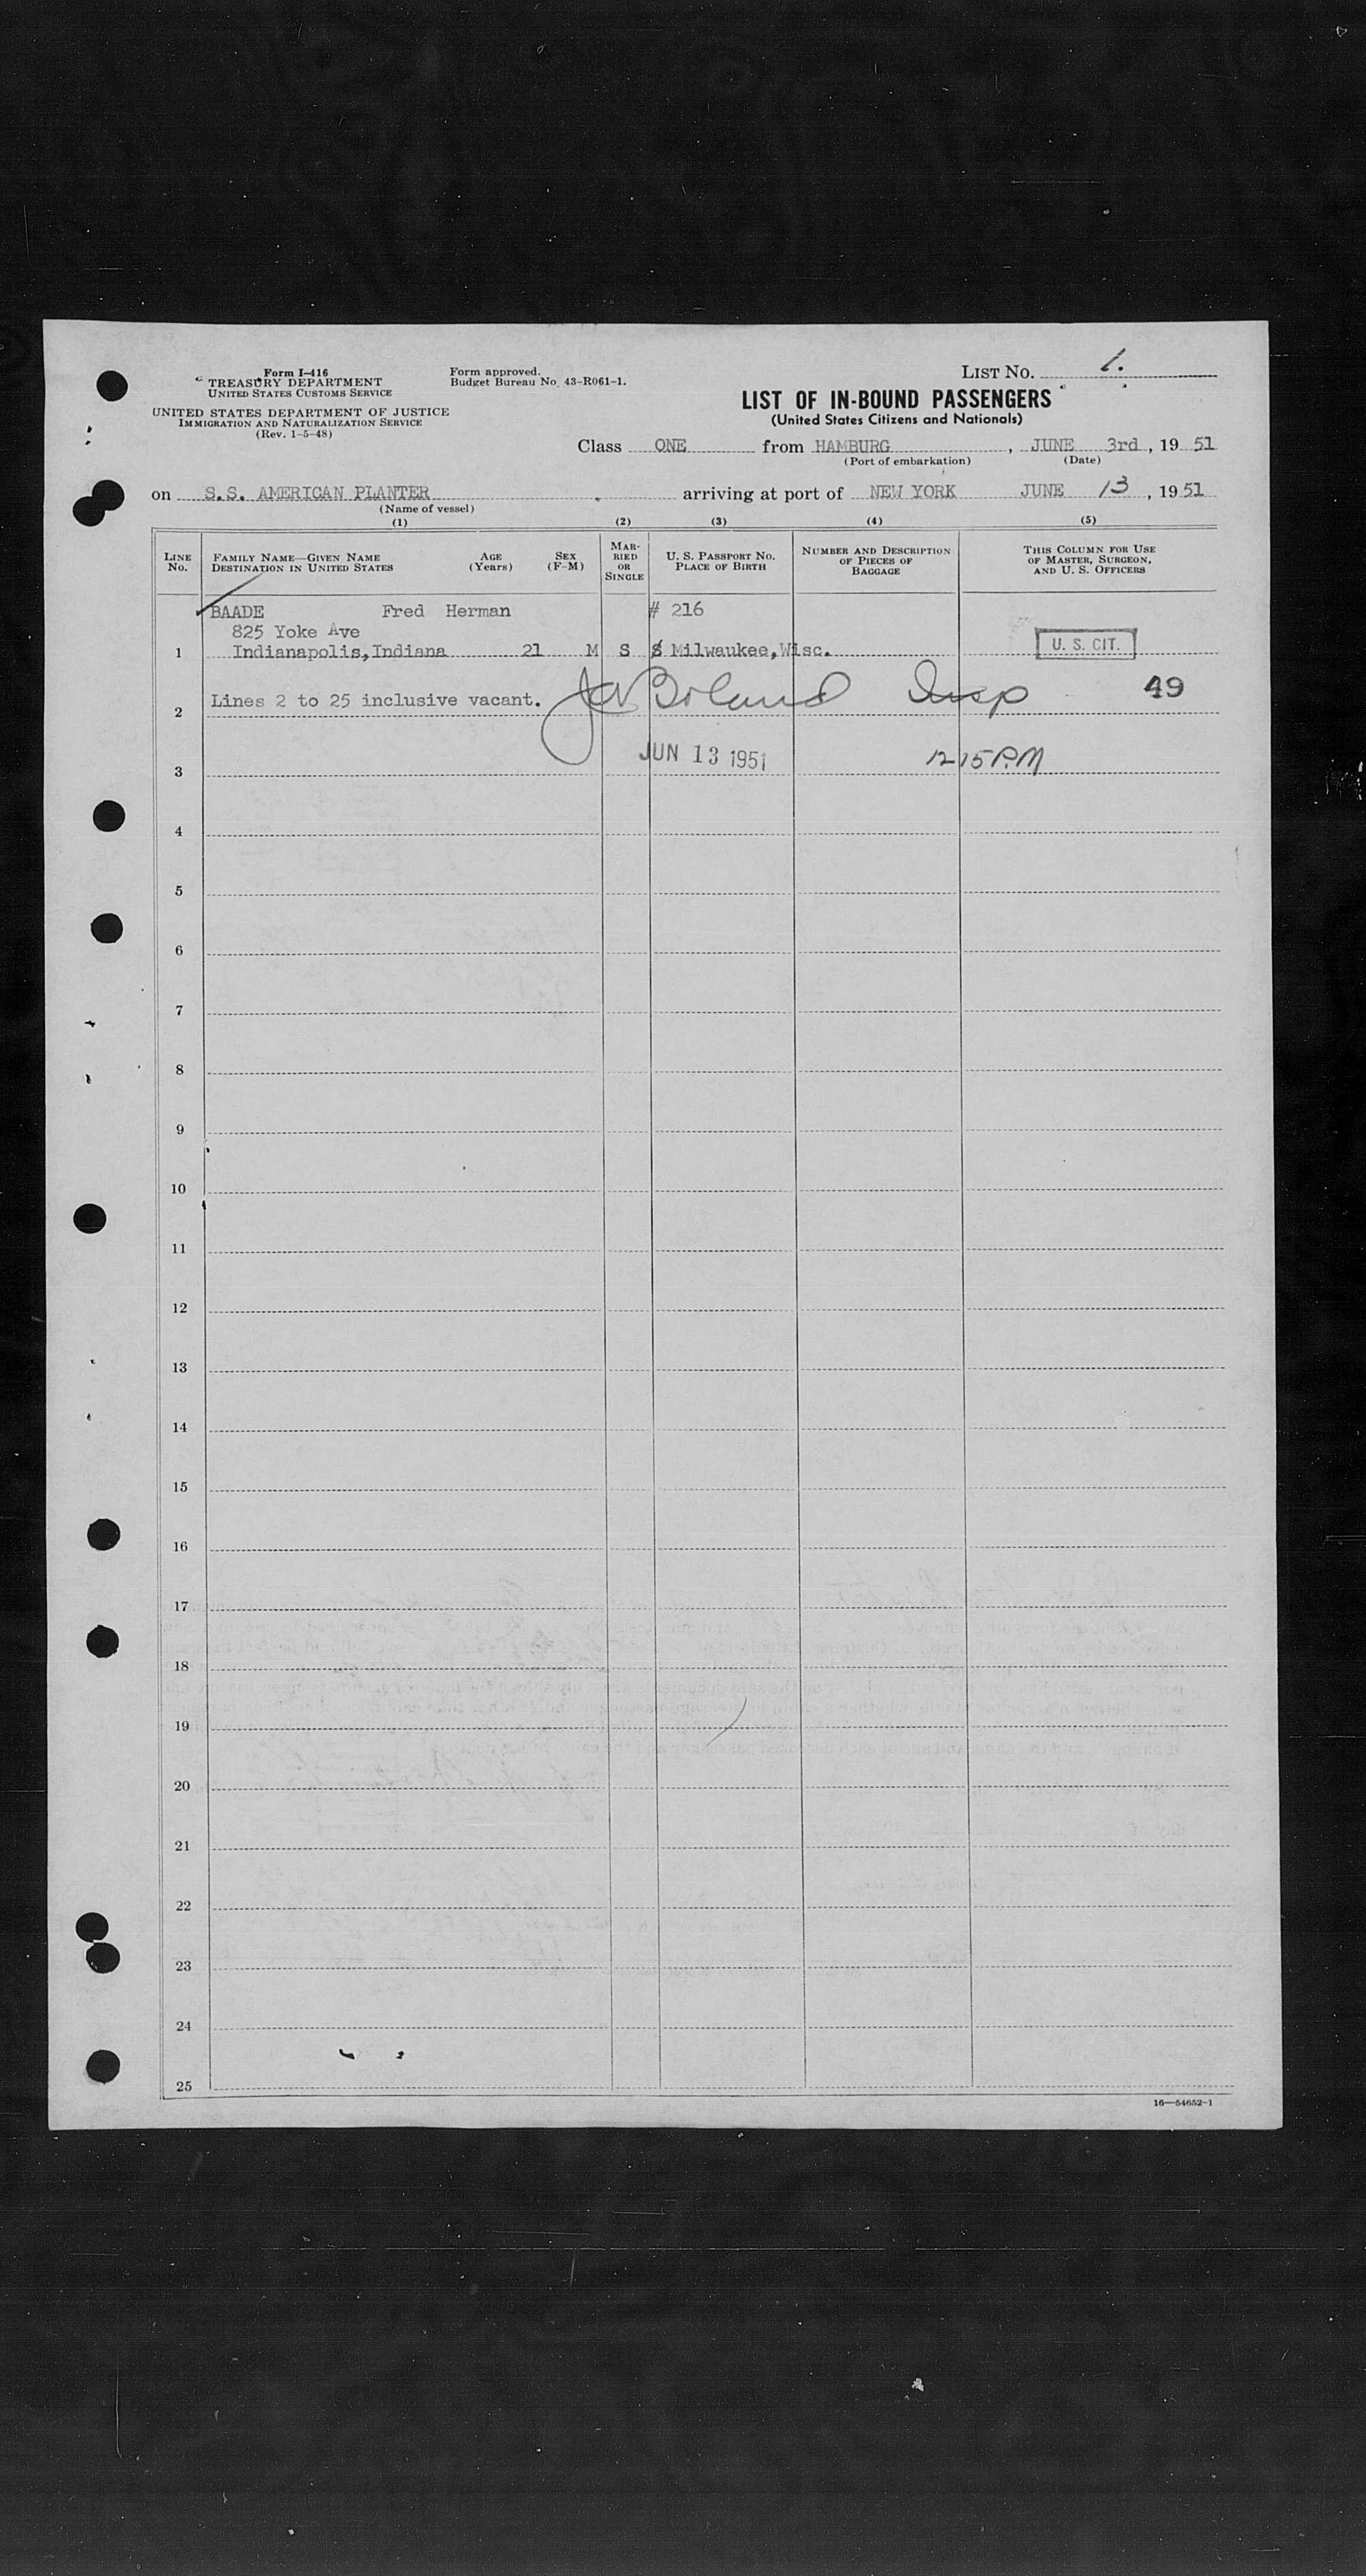 Form I-416
TREASURY DEPARTMENT
UNITED STATES CUSTOMS SERVICE
UNITED STATES DEPARTMENT OF JUSTICE
IMMIGRATION AND NATURALIZATION SERVICE
(Rev. 1-5-48)
Form approved.
Budget Bureau No. 43-R061-1.
LIST NO. 1.
LIST OF IN-BOUND PASSENGERS
(United States Citizens and Nationals)
Class ONE from HAMBURG, JUNE 3rd, 19 51
(Port of embarkation) (Date)
on S.S. AMERICAN PLANTER arriving at port of NEW YORK JUNE 13, 19 51
(Name of vessel)
(1) (2) (3) (4) (5)
LINE No.
FAMILY NAME—GIVEN NAME
DESTINATION IN UNITED STATES
AGE (Years)
SEX (F-M)
MAR-
RIED
OR
SINGLE
U. S. PASSPORT NO.
PLACE OF BIRTH
NUMBER AND DESCRIPTION
OF PIECES OF
BAGGAGE
THIS COLUMN FOR USE
OF MASTER, SURGEON,
AND U. S. OFFICERS
BAADE Fred Herman # 216
825 Yoke Ave
1 Indianapolis, Indiana 21 M S Milwaukee, Wisc. U. S. CIT.
2 Lines 2 to 25 inclusive vacant. Boland Insp 49
3 JUN 13 1951 12 15 P.M
4
5
6
7
8
9
10
11
12
13
14
15
16
17
18
19
20
21
22
23
24
25
16—54652-1